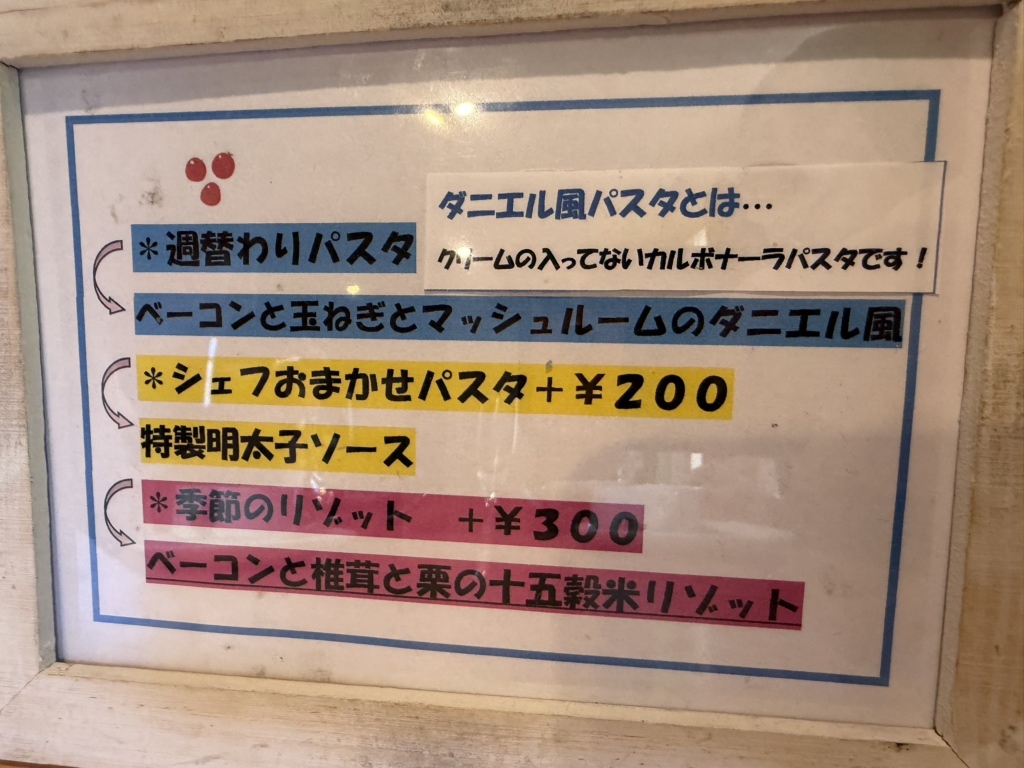 ダニエル風パスタとは…
クリームの入ってないカルボナーラパスタです！
＊週替わりパスタ
ベーコンと玉ねぎとマッシュルームのダニエル風
＊シェフおまかせパスタ＋￥２００
特製明太子ソース
＊季節のリゾット　＋￥３００
ベーコンと椎茸と栗の十五穀米リゾット